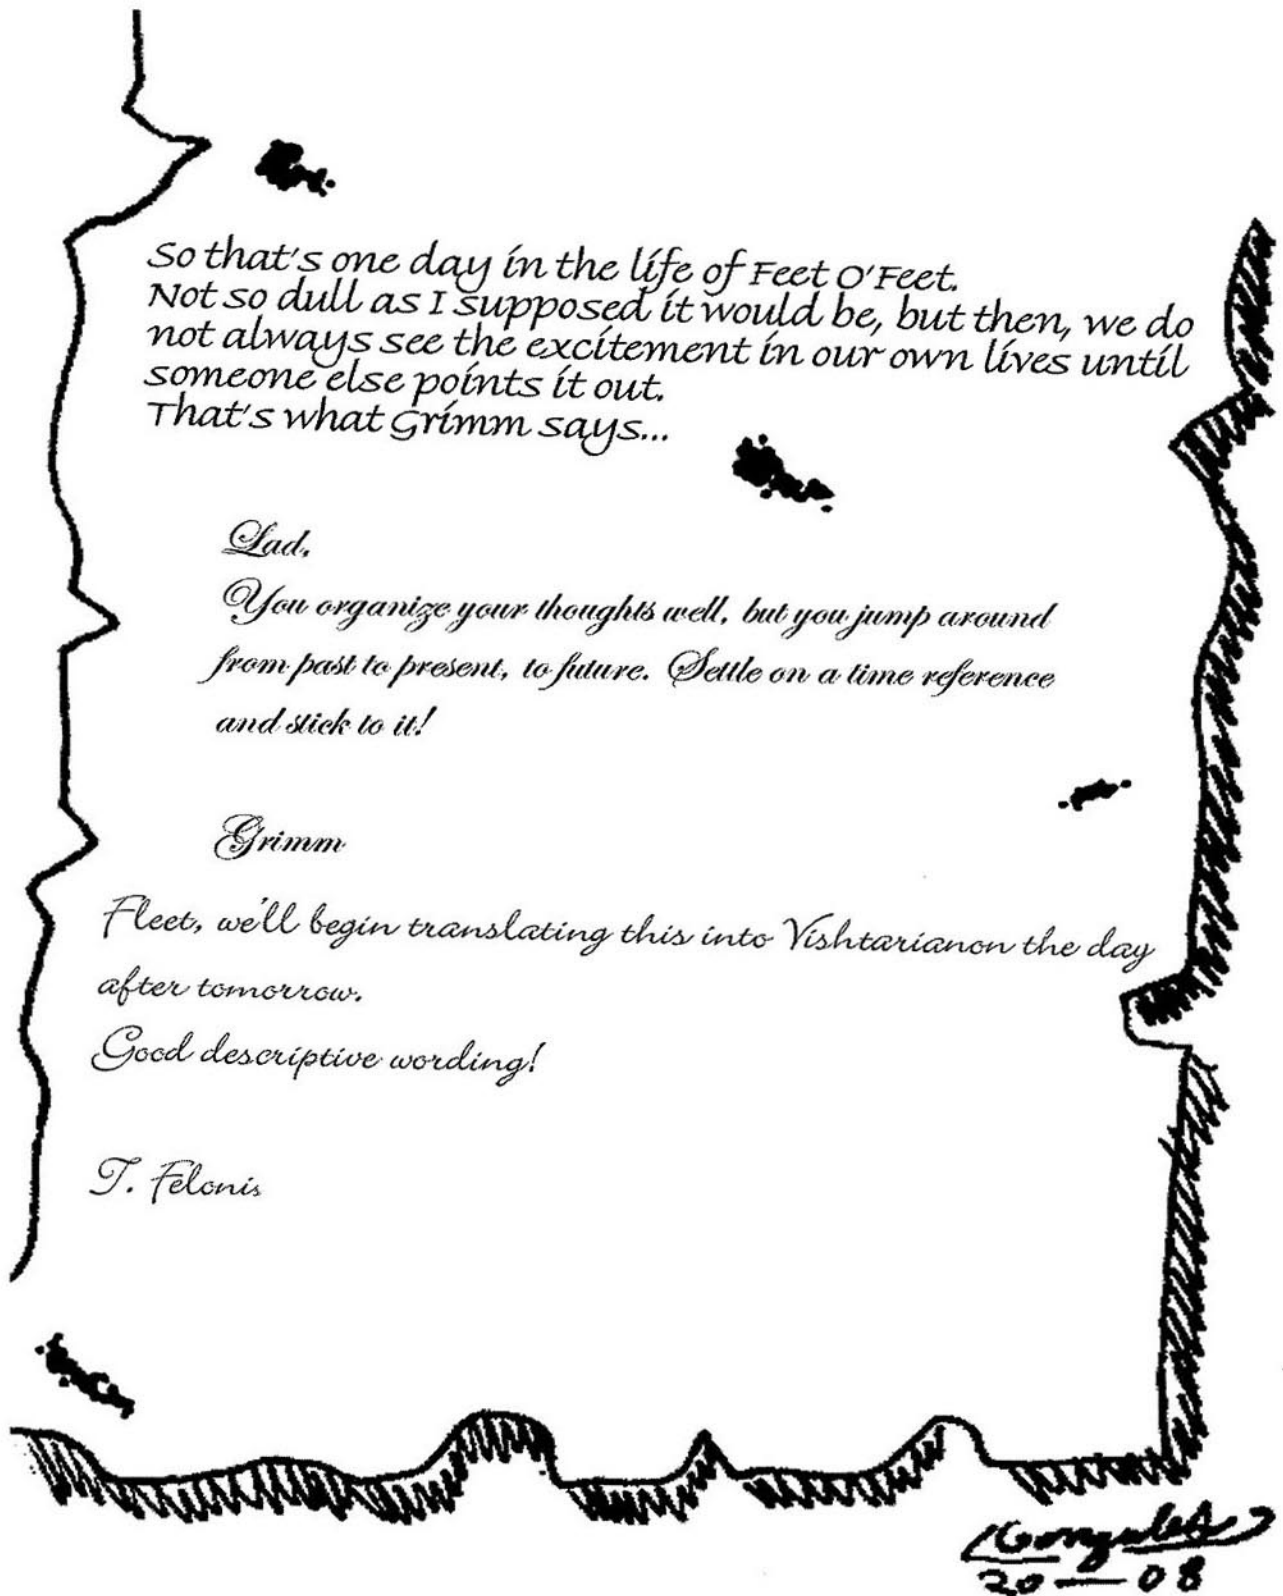 So that's one day in the life of Feet O'Feet.
Not so dull as I supposed it would be, but then, we do
not always see the excitement in our own lives until
someone else points it out.
That's what Grimm says...
Lad,
You organize your thoughts well, but you jump around
from past to present, to future. Settle on a time reference
and stick to it!
Grimm
Fleet, we'll begin translating this into Vishtarianon the day
after tomorrow.
Good descriptive wording!
T. Felonis
Gonzales
20—08